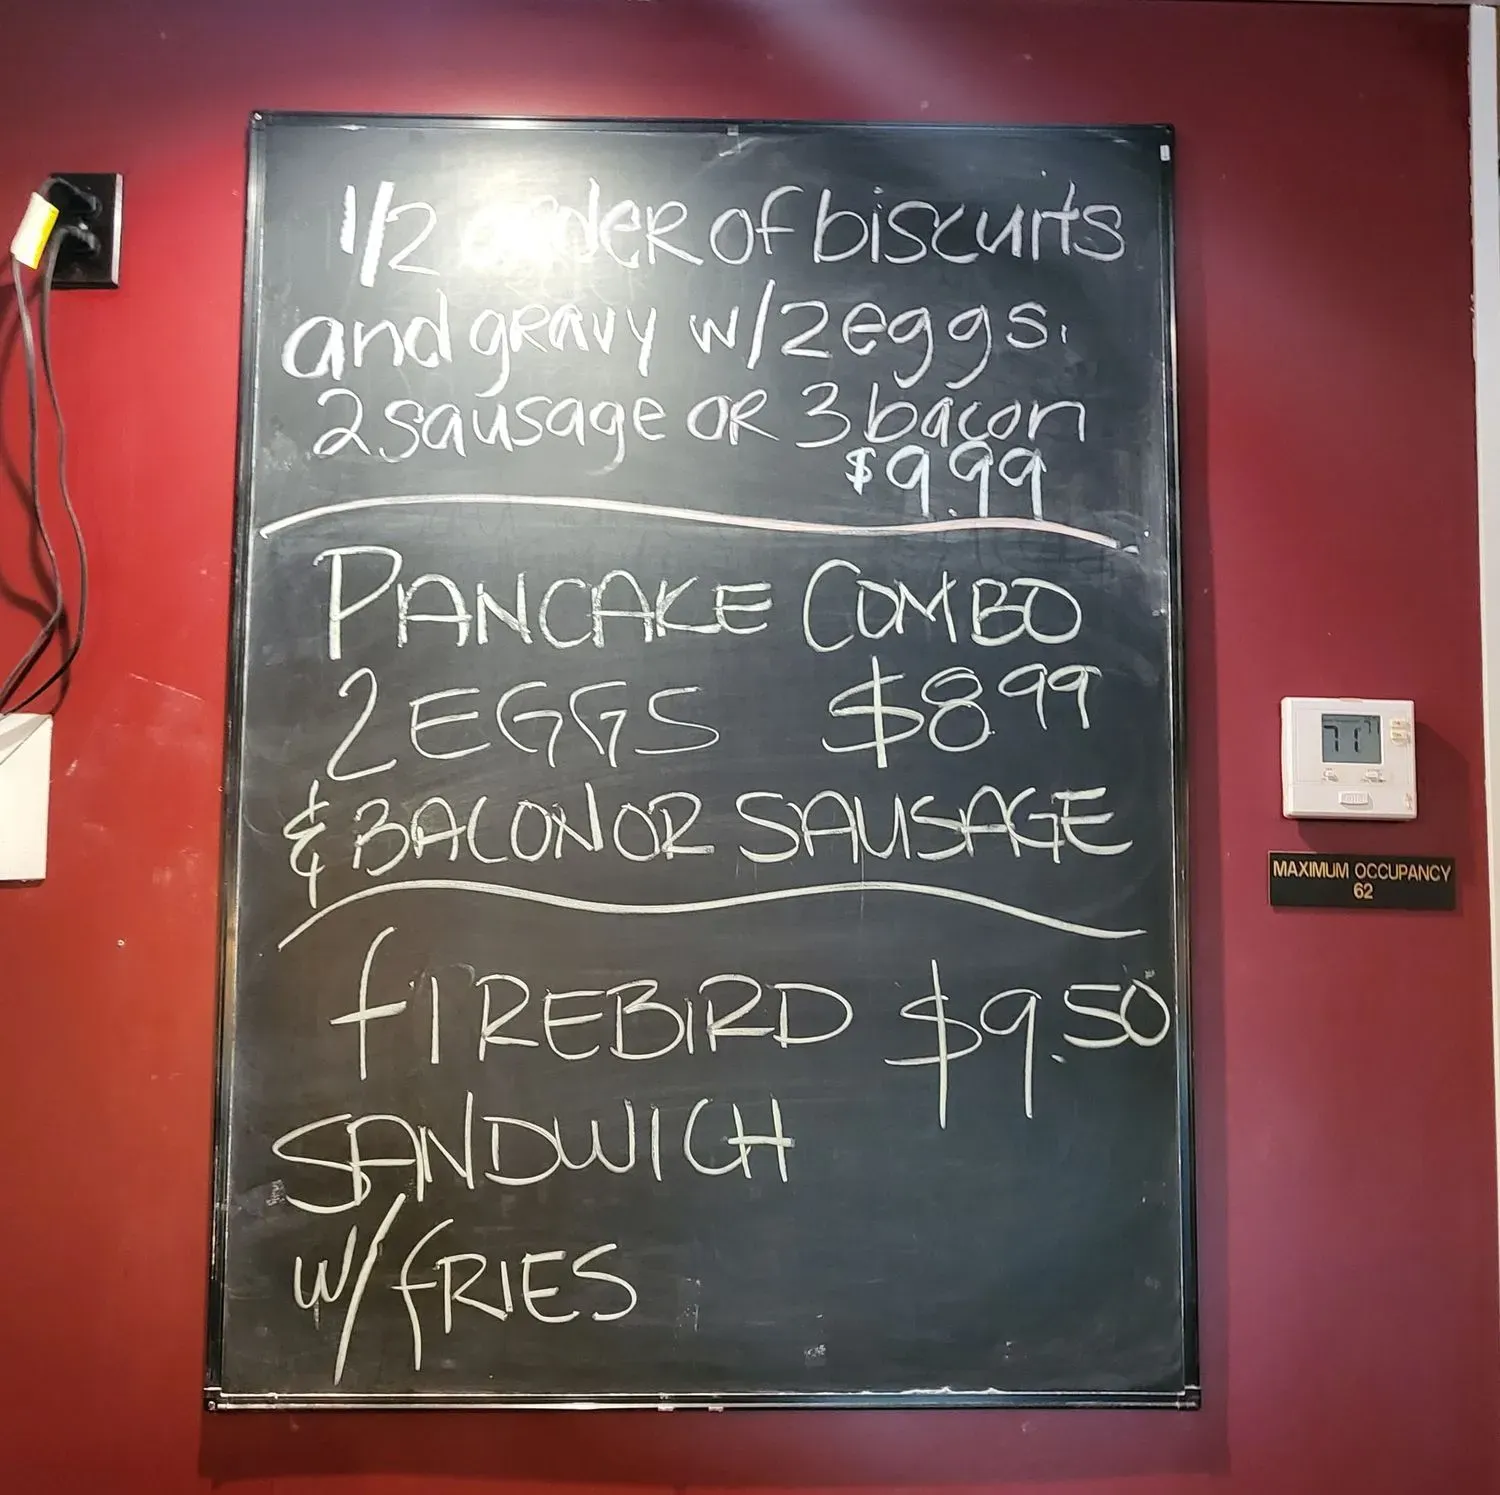 1/2 order of biscuits
and gravy w/2 eggs.
2 sausage or 3 bacon
$9.99
PANCAKE COMBO
2 EGGS $8.99
& BACON OR SAUSAGE
FIREBIRD $9.50
SANDWICH
W/ FRIES
71
MAXIMUM OCCUPANCY
62